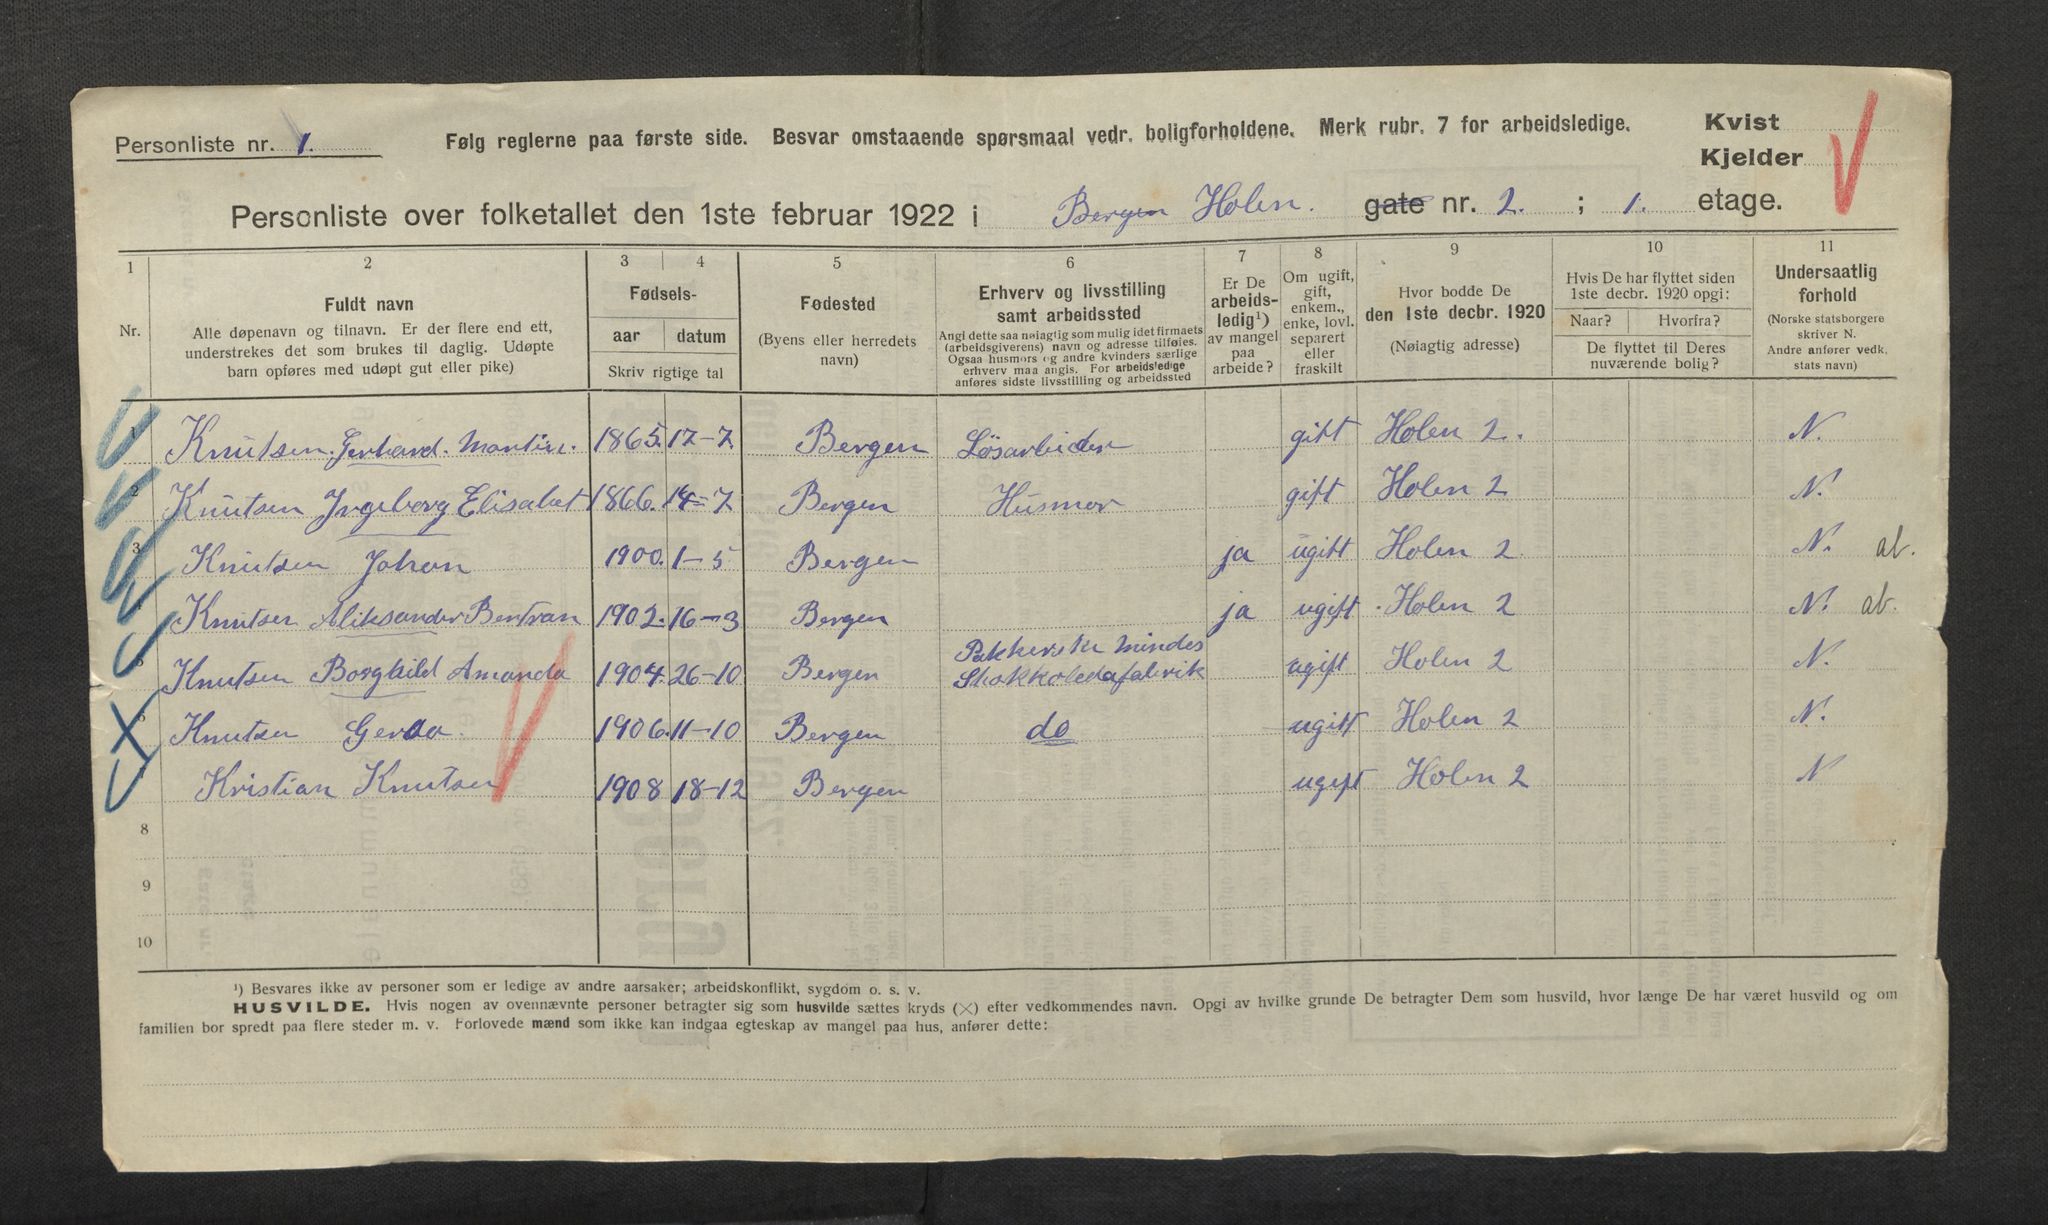 Personliste nr. 1.
Følg reglerne paa første side. Besvar omstaaende spørsmaal vedr. boligforholdene. Merk rubr. 7 for arbeidsledige.
Kvist
Kjelder
Personliste over folketallet den 1ste februar 1922 i Bergen Holen. gate nr. 2. ; 1. etage.
1 2 3 4 5 6 7 8 9 10 11
Nr.
Fuldt navn
Alle døpenavn og tilnavn. Er der flere end ett,
understrekes det som brukes til daglig. Udøpte
barn opføres med udøpt gut eller pike)
Fødsels-
aar datum
Skriv rigtige tal
Fødested
(Byens eller herredets
navn)
Erhverv og livsstilling
samt arbeidssted
Angi dette saa nøiagtig som mulig idet firmaets
(arbeidsgiverens) navn og adresse tilføies.
Ogsaa husmors og andre kvinders særlige
erhverv maa angis. For arbeidsledige
anføres sidste livsstilling og arbeidssted
Er De
arbeids-
ledig¹)
av mangel
paa
arbeide?
Om ugift,
gift,
enkem.,
enke, lovl.
separert
eller
fraskilt
Hvor bodde De
den 1ste decbr. 1920
(Nøiagtig adresse)
Hvis De har flyttet siden
1ste decbr. 1920 opgi:
Naar? Hvorfra?
De flyttet til Deres
nuværende bolig?
Undersaatlig
forhold
(Norske statsborgere
skriver N.
Andre anfører vedk.
stats navn)
1 Knutsen. Gerhard. Martin. 1865. 12-7. Bergen Løsarbeider gift Holen 2. N.
2 Knutsen Ingeborg Elisabet 1866. 14-7 Bergen Husmor gift Holen 2 N.
3 Knutsen Johan 1900. 1-5 Bergen ja ugift Holen 2 N. al.
4 Knutsen Aliksander Bertran 1902. 16-3 Bergen ja ugift Holen 2 N. al.
5 Knutsen Borghild Amanda 1904. 26-10 Bergen Pakkerske Mindes
Shokkoledafabrik ugift Holen 2 N.
6 Knutsen Gerda. 1906. 11-10 Bergen do ugift Holen 2 N.
Kristian Knutsen 1908 18-12 Bergen ugift Holen 2 N
8
9
10
¹) Besvares ikke av personer som er ledige av andre aarsaker; arbeidskonflikt, sygdom o. s. v.
HUSVILDE. Hvis nogen av ovennævnte personer betragter sig som husvilde sættes kryds (×) efter vedkommendes navn. Opgi av hvilke grunde De betragter Dem som husvild, hvor længe De har været husvild og om
familien bor spredt paa flere steder m. v. Forlovede mænd som ikke kan indgaa egteskap av mangel paa hus, anfører dette: